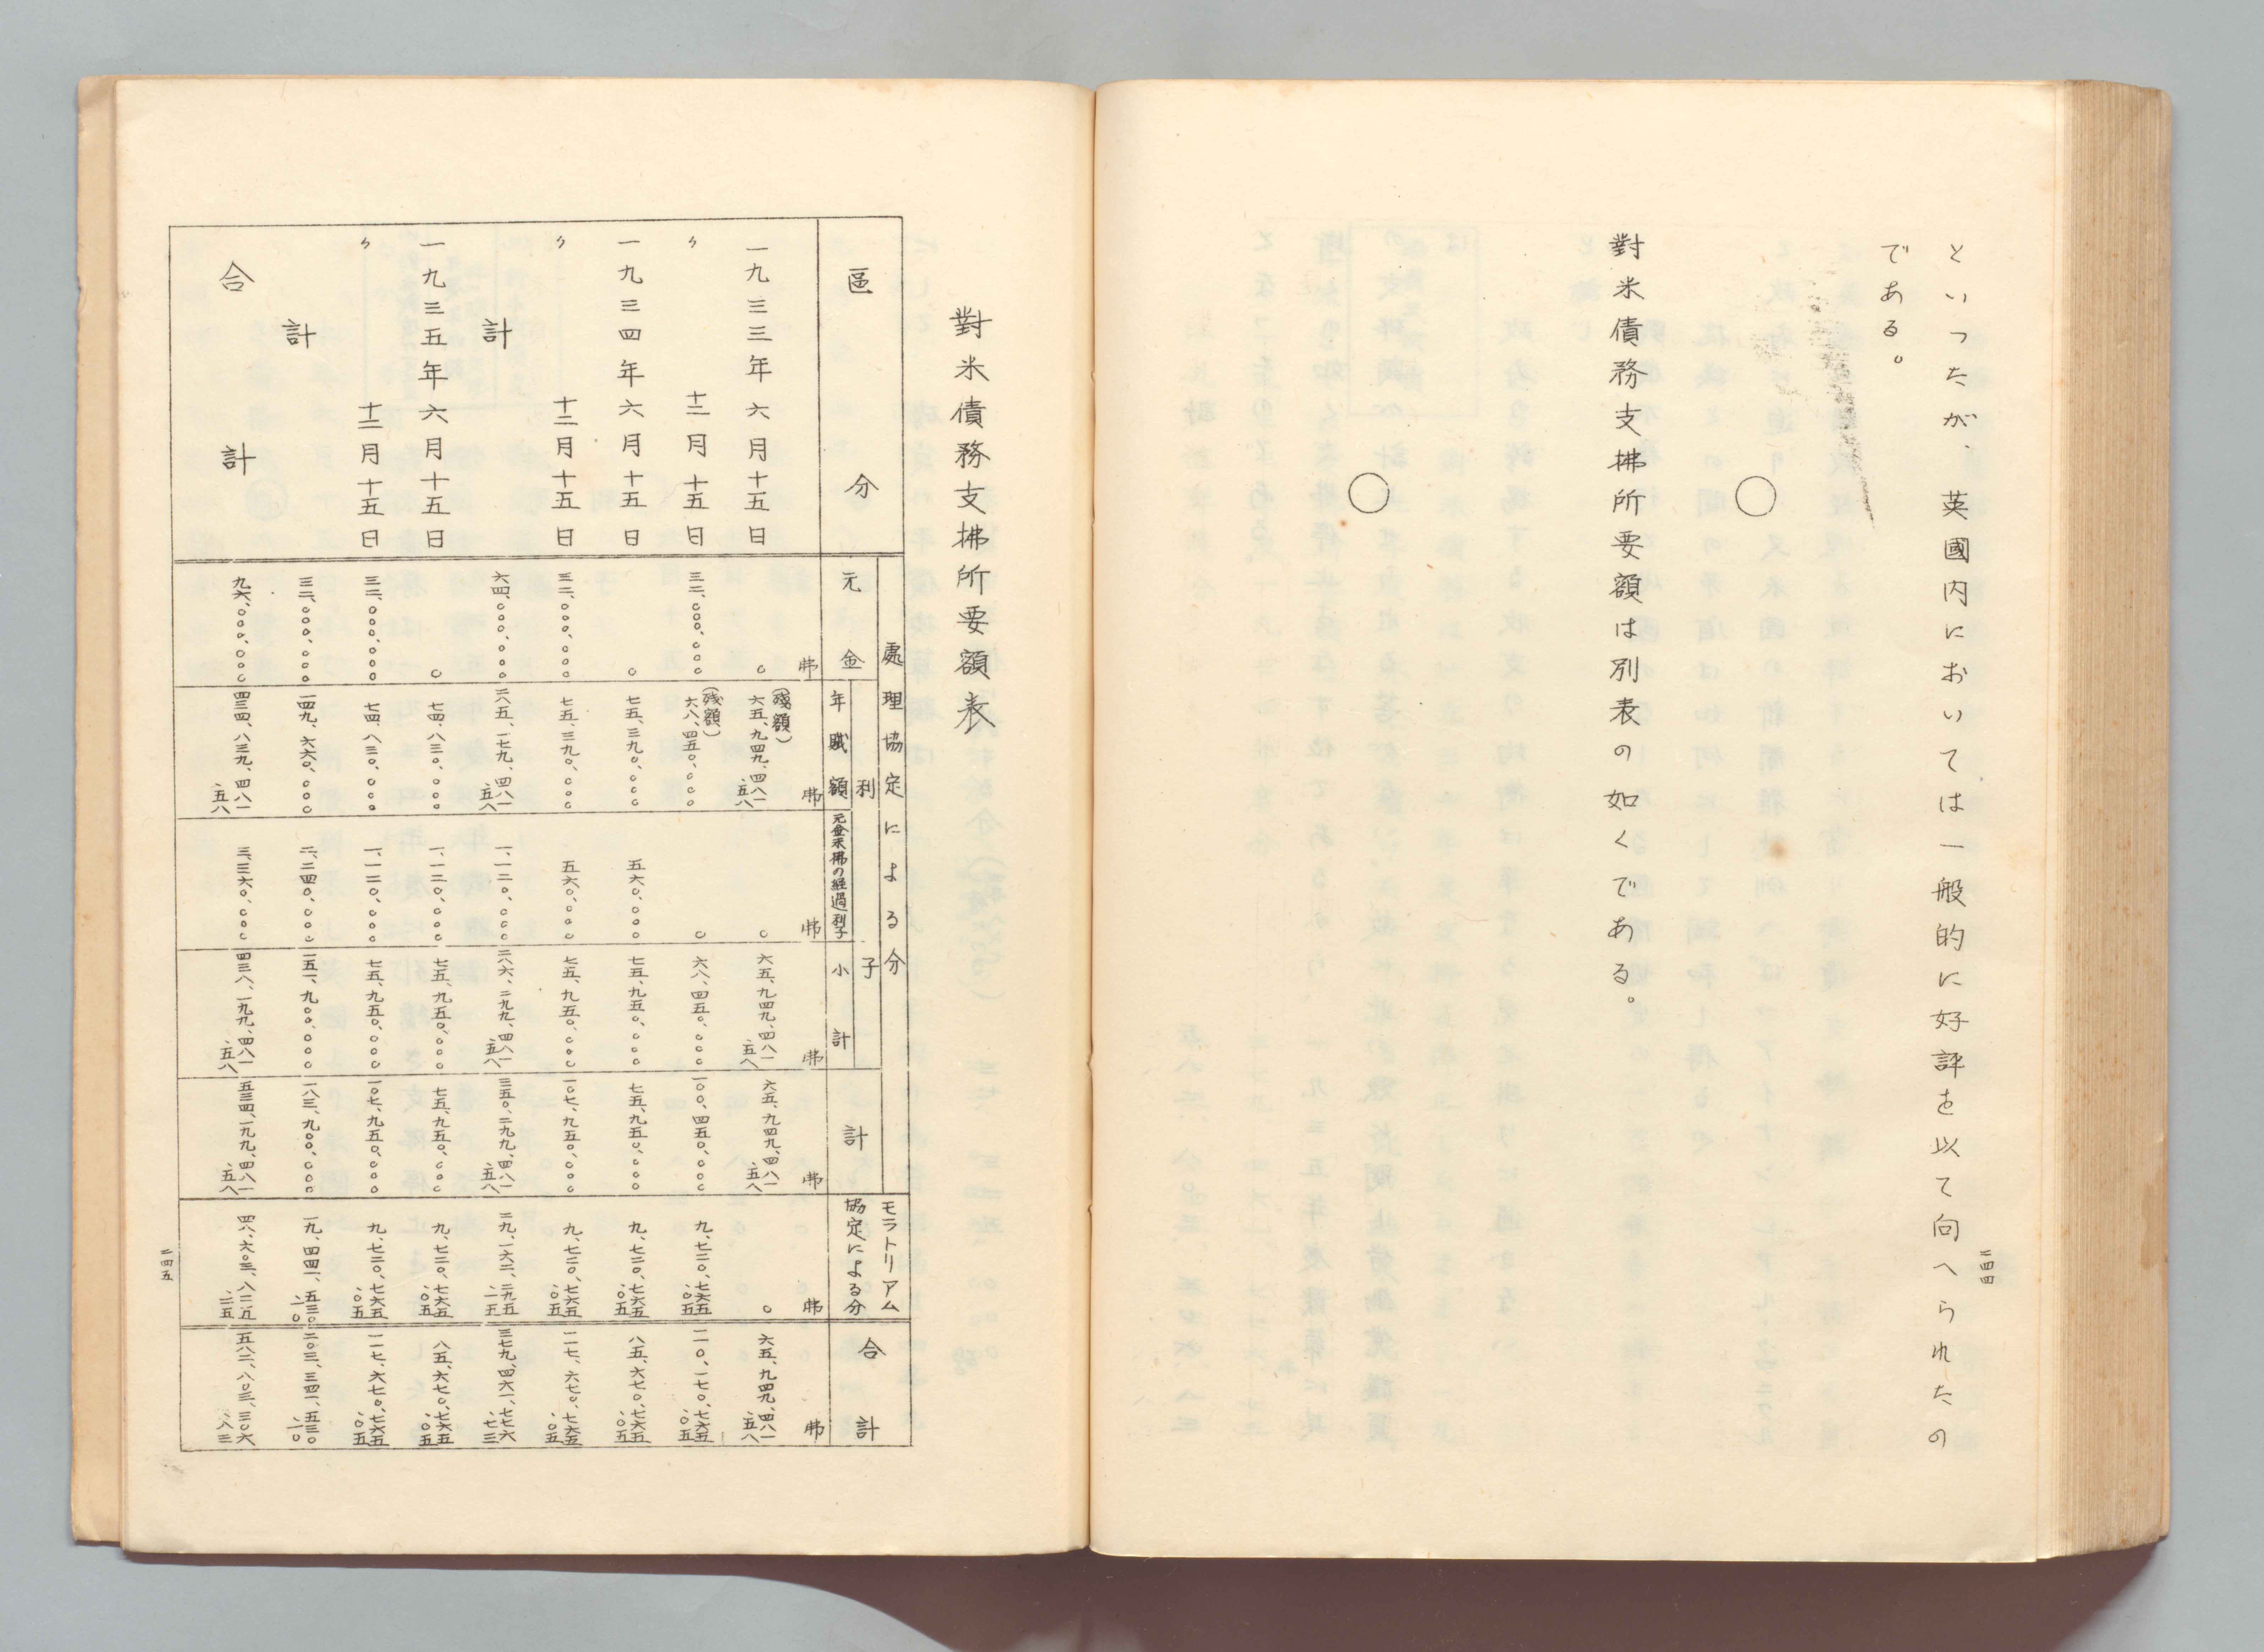 といつたが、英國内においては一般的に好評を以て向へられたの
である。
○
對米債務支拂所要額は別表の如くである。
○
二四四
對米債務支拂所要額表
區分 處理協定による分 元金 利子 年賦額 元金未拂の経過利子 小計 計 モラトリアム協定による分 合計
弗 弗 弗 弗 弗 弗 弗
一九三三年六月十五日 〇 (残額)六五、九四九、四八一.五八 〇 六五、九四九、四八一.五八 六五、九四九、四八一.五八 〇 六五、九四九、四八一.五八
〃 十二月十五日 三二、〇〇〇、〇〇〇 (残額)六八、四五〇、〇〇〇 〇 六八、四五〇、〇〇〇 一〇〇、四五〇、〇〇〇 九、七二〇、七六五.〇五 一一〇、一七〇、七六五.〇五
一九三四年六月十五日 〇 七五、三九〇、〇〇〇 五六〇、〇〇〇 七五、九五〇、〇〇〇 七五、九五〇、〇〇〇 九、七二〇、七六五.〇五 八五、六七〇、七六五.〇五
〃 十二月十五日 三二、〇〇〇、〇〇〇 七五、三九〇、〇〇〇 五六〇、〇〇〇 七五、九五〇、〇〇〇 一〇七、九五〇、〇〇〇 九、七二〇、七六五.〇五 一一七、六七〇、七六五.〇五
計 六四、〇〇〇、〇〇〇 二八五、一七九、四八一.五八 一、一二〇、〇〇〇 二八六、二九九、四八一.五八 三五〇、二九九、四八一.五八 二九、一六二、二九五.一五 三七九、四六一、七七六.七三
一九三五年六月十五日 〇 七四、八三〇、〇〇〇 一、一二〇、〇〇〇 七五、九五〇、〇〇〇 七五、九五〇、〇〇〇 九、七二〇、七六五.〇五 八五、六七〇、七六五.〇五
〃 十二月十五日 三二、〇〇〇、〇〇〇 七四、八三〇、〇〇〇 一、一二〇、〇〇〇 七五、九五〇、〇〇〇 一〇七、九五〇、〇〇〇 九、七二〇、七六五.〇五 一一七、六七〇、七六五.〇五
計 三二、〇〇〇、〇〇〇 一四九、六六〇、〇〇〇 二、二四〇、〇〇〇 一五一、九〇〇、〇〇〇 一八三、九〇〇、〇〇〇 一九、四四一、五三〇.一〇 二〇三、三四一、五三〇.一〇
合計 九六、〇〇〇、〇〇〇 四三四、八三九、四八一.五八 三、三六〇、〇〇〇 四三八、一九九、四八一.五八 五三四、一九九、四八一.五八 四八、六〇三、八二五.二五 五八二、八〇三、三〇六.八三
二四五